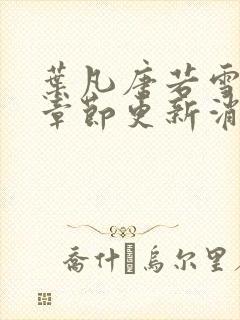 葉凡唐若雪
章節更新消
喬什烏尔里